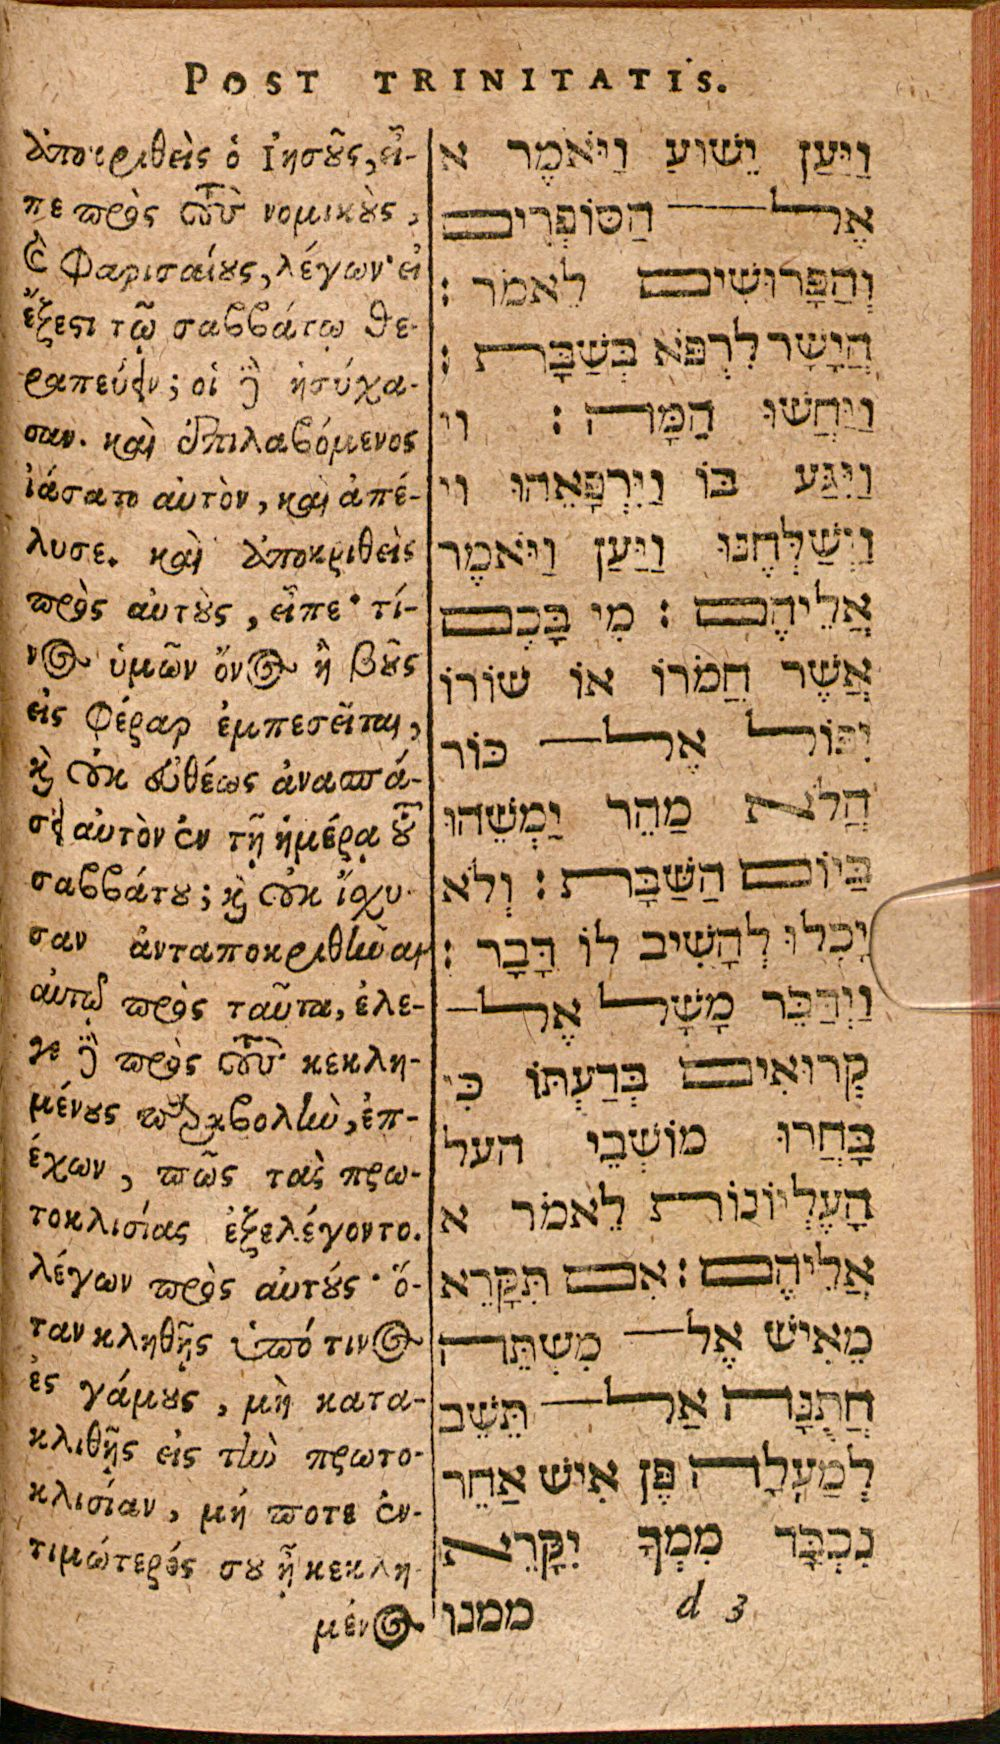 POST TRINITATIS.
ἀποκριθεὶς ὁ Ἰησοῦς, εἶ-
πε πρὸς τοὺς νομικοὺς,
καὶ Φαρισαίους, λέγων· εἰ
ἔξεστι τῷ σαββάτῳ θε-
ραπεύειν; οἱ δὲ ἡσύχα-
σαν. καὶ ἐπιλαβόμενος
ἰάσατο αὐτὸν, καὶ ἀπέ-
λυσε. καὶ ἀποκριθεὶς
πρὸς αὐτοὺς, εἶπε· τί-
νος ὑμῶν ὄνος ἢ βοῦς
εἰς φρέαρ ἐμπεσεῖται,
καὶ οὐκ εὐθέως ἀνασπά-
σει αὐτὸν ἐν τῇ ἡμέρᾳ τοῦ
σαββάτου; καὶ οὐκ ἴσχυ-
σαν ἀνταποκριθῆναι
αὐτῷ πρὸς ταῦτα, ἔλε-
γε δὲ πρὸς τοὺς κεκλη-
μένους παραβολὴν, ἐπ-
έχων, πῶς τὰς πρω-
τοκλισίας ἐξελέγοντο.
λέγων πρὸς αὐτούς· ὅ-
ταν κληθῇς ὑπό τινος
ἐς γάμους, μὴ κατα-
κλιθῇς εἰς τὴν πρωτο-
κλισίαν, μή ποτε ἐν-
τιμώτερός σου ᾖ κεκλη-
μένος
וַיַּעַן יֵשׁוּעַ וַיֹּאמֶר א
אֶל הַסּוֹפְרִים
וְהַפָּרוּשִׁים לֵאמֹר :
הֲיָשָׁר לִרְפֹּא בְּשַׁבָּת :
וַיַּחֲשׁוּ הַמָּה : וי
וַיִּגַּע בּוֹ וַיִּרְפָּאֵהוּ וי
וַיְשַׁלְּחֶנּוּ וַיַּעַן וַיֹּאמֶר
אֲלֵיהֶם : מִי בָּכֶם
אֲשֶׁר חֲמֹרוֹ אוֹ שׁוֹרוֹ
יִפּוֹל אֶל כּוֹר
הֲלֹא מַהֵר יַמְשֵׁהוּ
בַּיוֹם הַשַּׁבָּת : וְלֹא
יָכְלוּ לְהָשִׁיב לוֹ דָּבָר :
וַיְדַבֵּר מָשָׁל אֶל
קְרוּאִים בְּדַעְתּוֹ כִּי
בָּחֲרוּ מוֹשְׁבֵי העל
הָעֶלְיוֹנוֹת לֵאמֹר א
אֲלֵיהֶם : אִם תִּקָּרֵא
מֵאִישׁ אֶל מִשְׁתֵּה
חֲתֻנָּה אַל תֵּשֵׁב
לְמַעְלָה פֶּן אִישׁ אַחֵר
נִכְבָּד מִמְּךָ יִקָּרֵא
ממנו
d 3